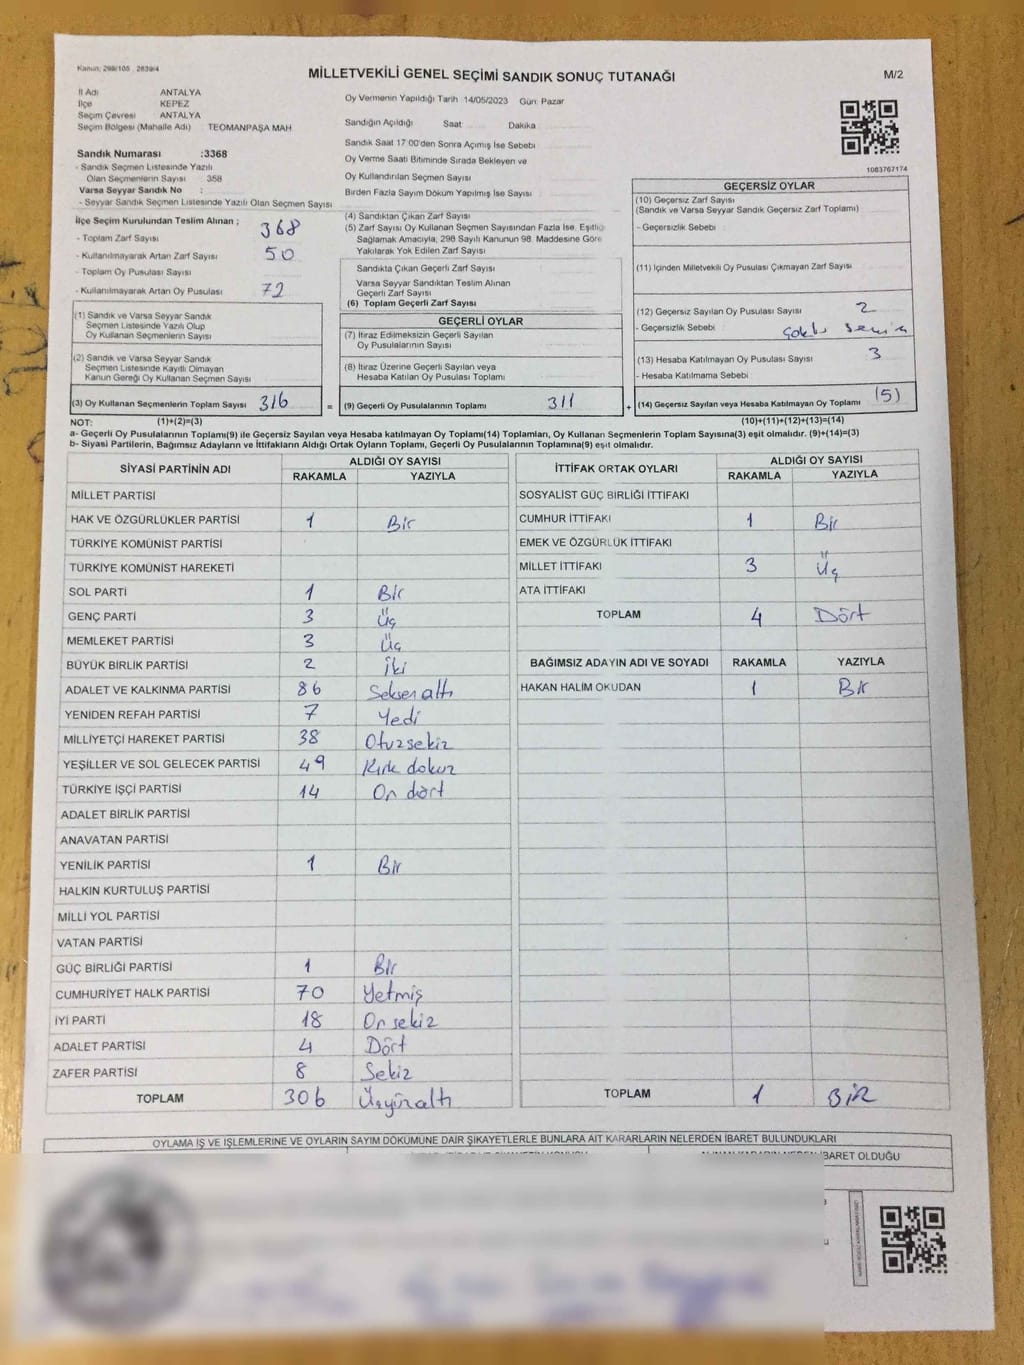 Kanun; 298/105 , 2839/4
MİLLETVEKİLİ GENEL SEÇİMİ SANDIK SONUÇ TUTANAĞI
M/2
İl Adı ANTALYA
İlçe KEPEZ
Seçim Çevresi ANTALYA
Seçim Bölgesi (Mahalle Adı) TEOMANPAŞA MAH
Oy Vermenin Yapıldığı Tarih 14/05/2023 Gün: Pazar
Sandığın Açıldığı Saat Dakika
Sandık Saat 17 00'den Sonra Açılmış İse Sebebi
Oy Verme Saati Bitiminde Sırada Bekleyen ve
Oy Kullandırılan Seçmen Sayısı
Birden Fazla Sayım Döküm Yapılmış İse Sayısı
1083767174
Sandık Numarası :3368
- Sandık Seçmen Listesinde Yazılı
Olan Seçmenlerin Sayısı : 358
Varsa Seyyar Sandık No :
- Seyyar Sandık Seçmen Listesinde Yazılı Olan Seçmen Sayısı
İlçe Seçim Kurulundan Teslim Alınan ;
- Toplam Zarf Sayısı 368
- Kullanılmayarak Artan Zarf Sayısı 50
- Toplam Oy Pusulası Sayısı
- Kullanılmayarak Artan Oy Pusulası 72
(1) Sandık ve Varsa Seyyar Sandık
Seçmen Listesinde Yazılı Olup
Oy Kullanan Seçmenlerin Sayısı
(2) Sandık ve Varsa Seyyar Sandık
Seçmen Listesinde Kayıtlı Olmayan
Kanun Gereği Oy Kullanan Seçmen Sayısı
(3) Oy Kullanan Seçmenlerin Toplam Sayısı 316
(4) Sandıktan Çıkan Zarf Sayısı
(5) Zarf Sayısı Oy Kullanan Seçmen Sayısından Fazla İse, Eşitliği
Sağlamak Amacıyla; 298 Sayılı Kanunun 98. Maddesine Göre
Yakılarak Yok Edilen Zarf Sayısı
Sandıkta Çıkan Geçerli Zarf Sayısı
Varsa Seyyar Sandıktan Teslim Alınan
Geçerli Zarf Sayısı
(6) Toplam Geçerli Zarf Sayısı
GEÇERLİ OYLAR
(7) İtiraz Edilmeksizin Geçerli Sayılan
Oy Pusulalarının Sayısı
(8) İtiraz Üzerine Geçerli Sayılan veya
Hesaba Katılan Oy Pusulası Toplamı
= (9) Geçerli Oy Pusulalarının Toplamı 311 +
GEÇERSİZ OYLAR
(10) Geçersiz Zarf Sayısı
(Sandık ve Varsa Seyyar Sandık Geçersiz Zarf Toplamı)
- Geçersizlik Sebebi :
(11) İçinden Milletvekili Oy Pusulası Çıkmayan Zarf Sayısı
(12) Geçersiz Sayılan Oy Pusulası Sayısı 2
- Geçersizlik Sebebi :
(13) Hesaba Katılmayan Oy Pusulası Sayısı 3
- Hesaba Katılmama Sebebi
(14) Geçersiz Sayılan veya Hesaba Katılmayan Oy Toplamı (5)
NOT: (1)+(2)=(3) (10)+(11)+(12)+(13)=(14)
a- Geçerli Oy Pusulalarının Toplamı(9) ile Geçersiz Sayılan veya Hesaba katılmayan Oy Toplamı(14) Toplamları, Oy Kullanan Seçmenlerin Toplam Sayısına(3) eşit olmalıdır. (9)+(14)=(3)
b- Siyasi Partilerin, Bağımsız Adayların ve İttifakların Aldığı Ortak Oyların Toplamı, Geçerli Oy Pusulalarının Toplamına(9) eşit olmalıdır.
SİYASİ PARTİNİN ADI ALDIĞI OY SAYISI
RAKAMLA YAZIYLA
MİLLET PARTİSİ
HAK VE ÖZGÜRLÜKLER PARTİSİ 1 Bir
TÜRKİYE KOMÜNİST PARTİSİ
TÜRKİYE KOMÜNİST HAREKETİ
SOL PARTİ 1 Bir
GENÇ PARTİ 3 Üç
MEMLEKET PARTİSİ 3 Üç
BÜYÜK BİRLİK PARTİSİ 2 İki
ADALET VE KALKINMA PARTİSİ 86 Seksenaltı
YENİDEN REFAH PARTİSİ 7 Yedi
MİLLİYETÇİ HAREKET PARTİSİ 38 Otuzsekiz
YEŞİLLER VE SOL GELECEK PARTİSİ 49 Kırk dokuz
TÜRKİYE İŞÇİ PARTİSİ 14 On dört
ADALET BİRLİK PARTİSİ
ANAVATAN PARTİSİ
YENİLİK PARTİSİ 1 Bir
HALKIN KURTULUŞ PARTİSİ
MİLLİ YOL PARTİSİ
VATAN PARTİSİ
GÜÇ BİRLİĞİ PARTİSİ 1 Bir
CUMHURİYET HALK PARTİSİ 70 Yetmiş
İYİ PARTİ 18 On sekiz
ADALET PARTİSİ 4 Dört
ZAFER PARTİSİ 8 Sekiz
TOPLAM 306 Üçyüzaltı
İTTİFAK ORTAK OYLARI ALDIĞI OY SAYISI
RAKAMLA YAZIYLA
SOSYALİST GÜÇ BİRLİĞİ İTTİFAKI
CUMHUR İTTİFAKI 1 Bir
EMEK VE ÖZGÜRLÜK İTTİFAKI
MİLLET İTTİFAKI 3 Üç
ATA İTTİFAKI
TOPLAM 4 Dört
BAĞIMSIZ ADAYIN ADI VE SOYADI RAKAMLA YAZIYLA
HAKAN HALIM OKUDAN 1 Bir
TOPLAM 1 BİR
OYLAMA İŞ VE İŞLEMLERİNE VE OYLARIN SAYIM DÖKÜMÜNE DAİR ŞİKAYETLERLE BUNLARA AİT KARARLARIN NELERDEN İBARET BULUNDUKLARI
İBARET OLDUĞU